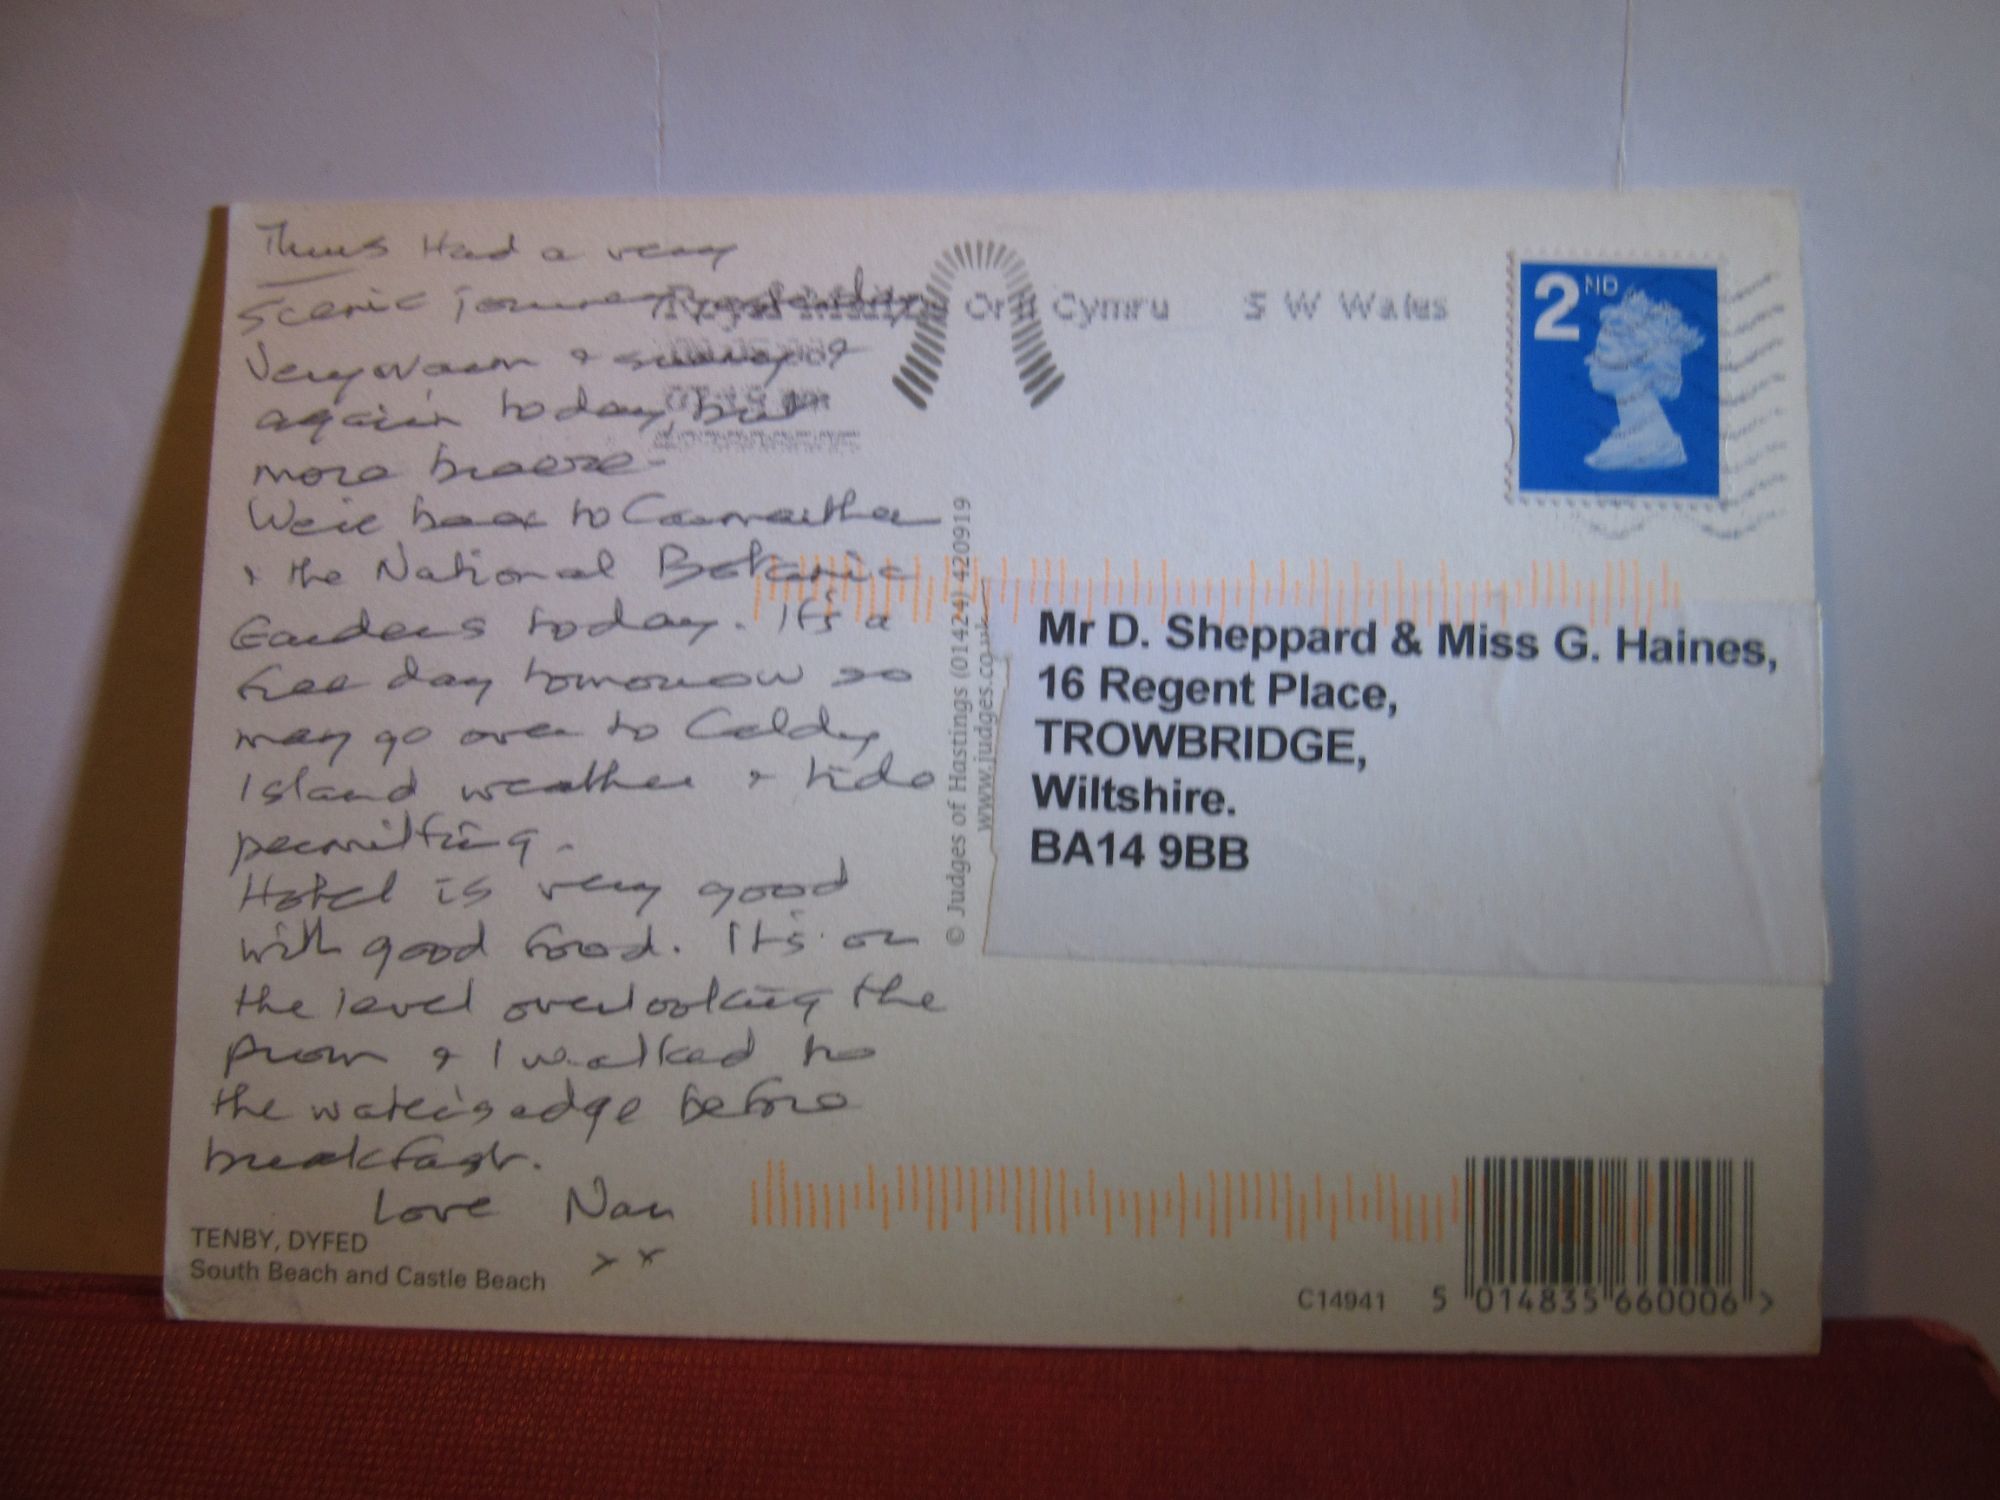 Thurs Had a very
scenic journey yesterday
Very warm & sunny
again today, but
more breeze.
We're back to Carmarthen
& the National Botanic
Gardens today. It's a
free day tomorrow so
may go over to Caldey
Island weather & tide
permitting.
Hotel is very good
with good food. It's on
the level overlooking the
prom & I walked to
the water's edge before
breakfast.
Love Nan
x x
TENBY, DYFED
South Beach and Castle Beach
Royal Mail Cymru S W Wales
2ND
© Judges of Hastings (01424) 420919
www.judges.co.uk
Mr D. Sheppard & Miss G. Haines,
16 Regent Place,
TROWBRIDGE,
Wiltshire.
BA14 9BB
C14941
5 014835 660006 >